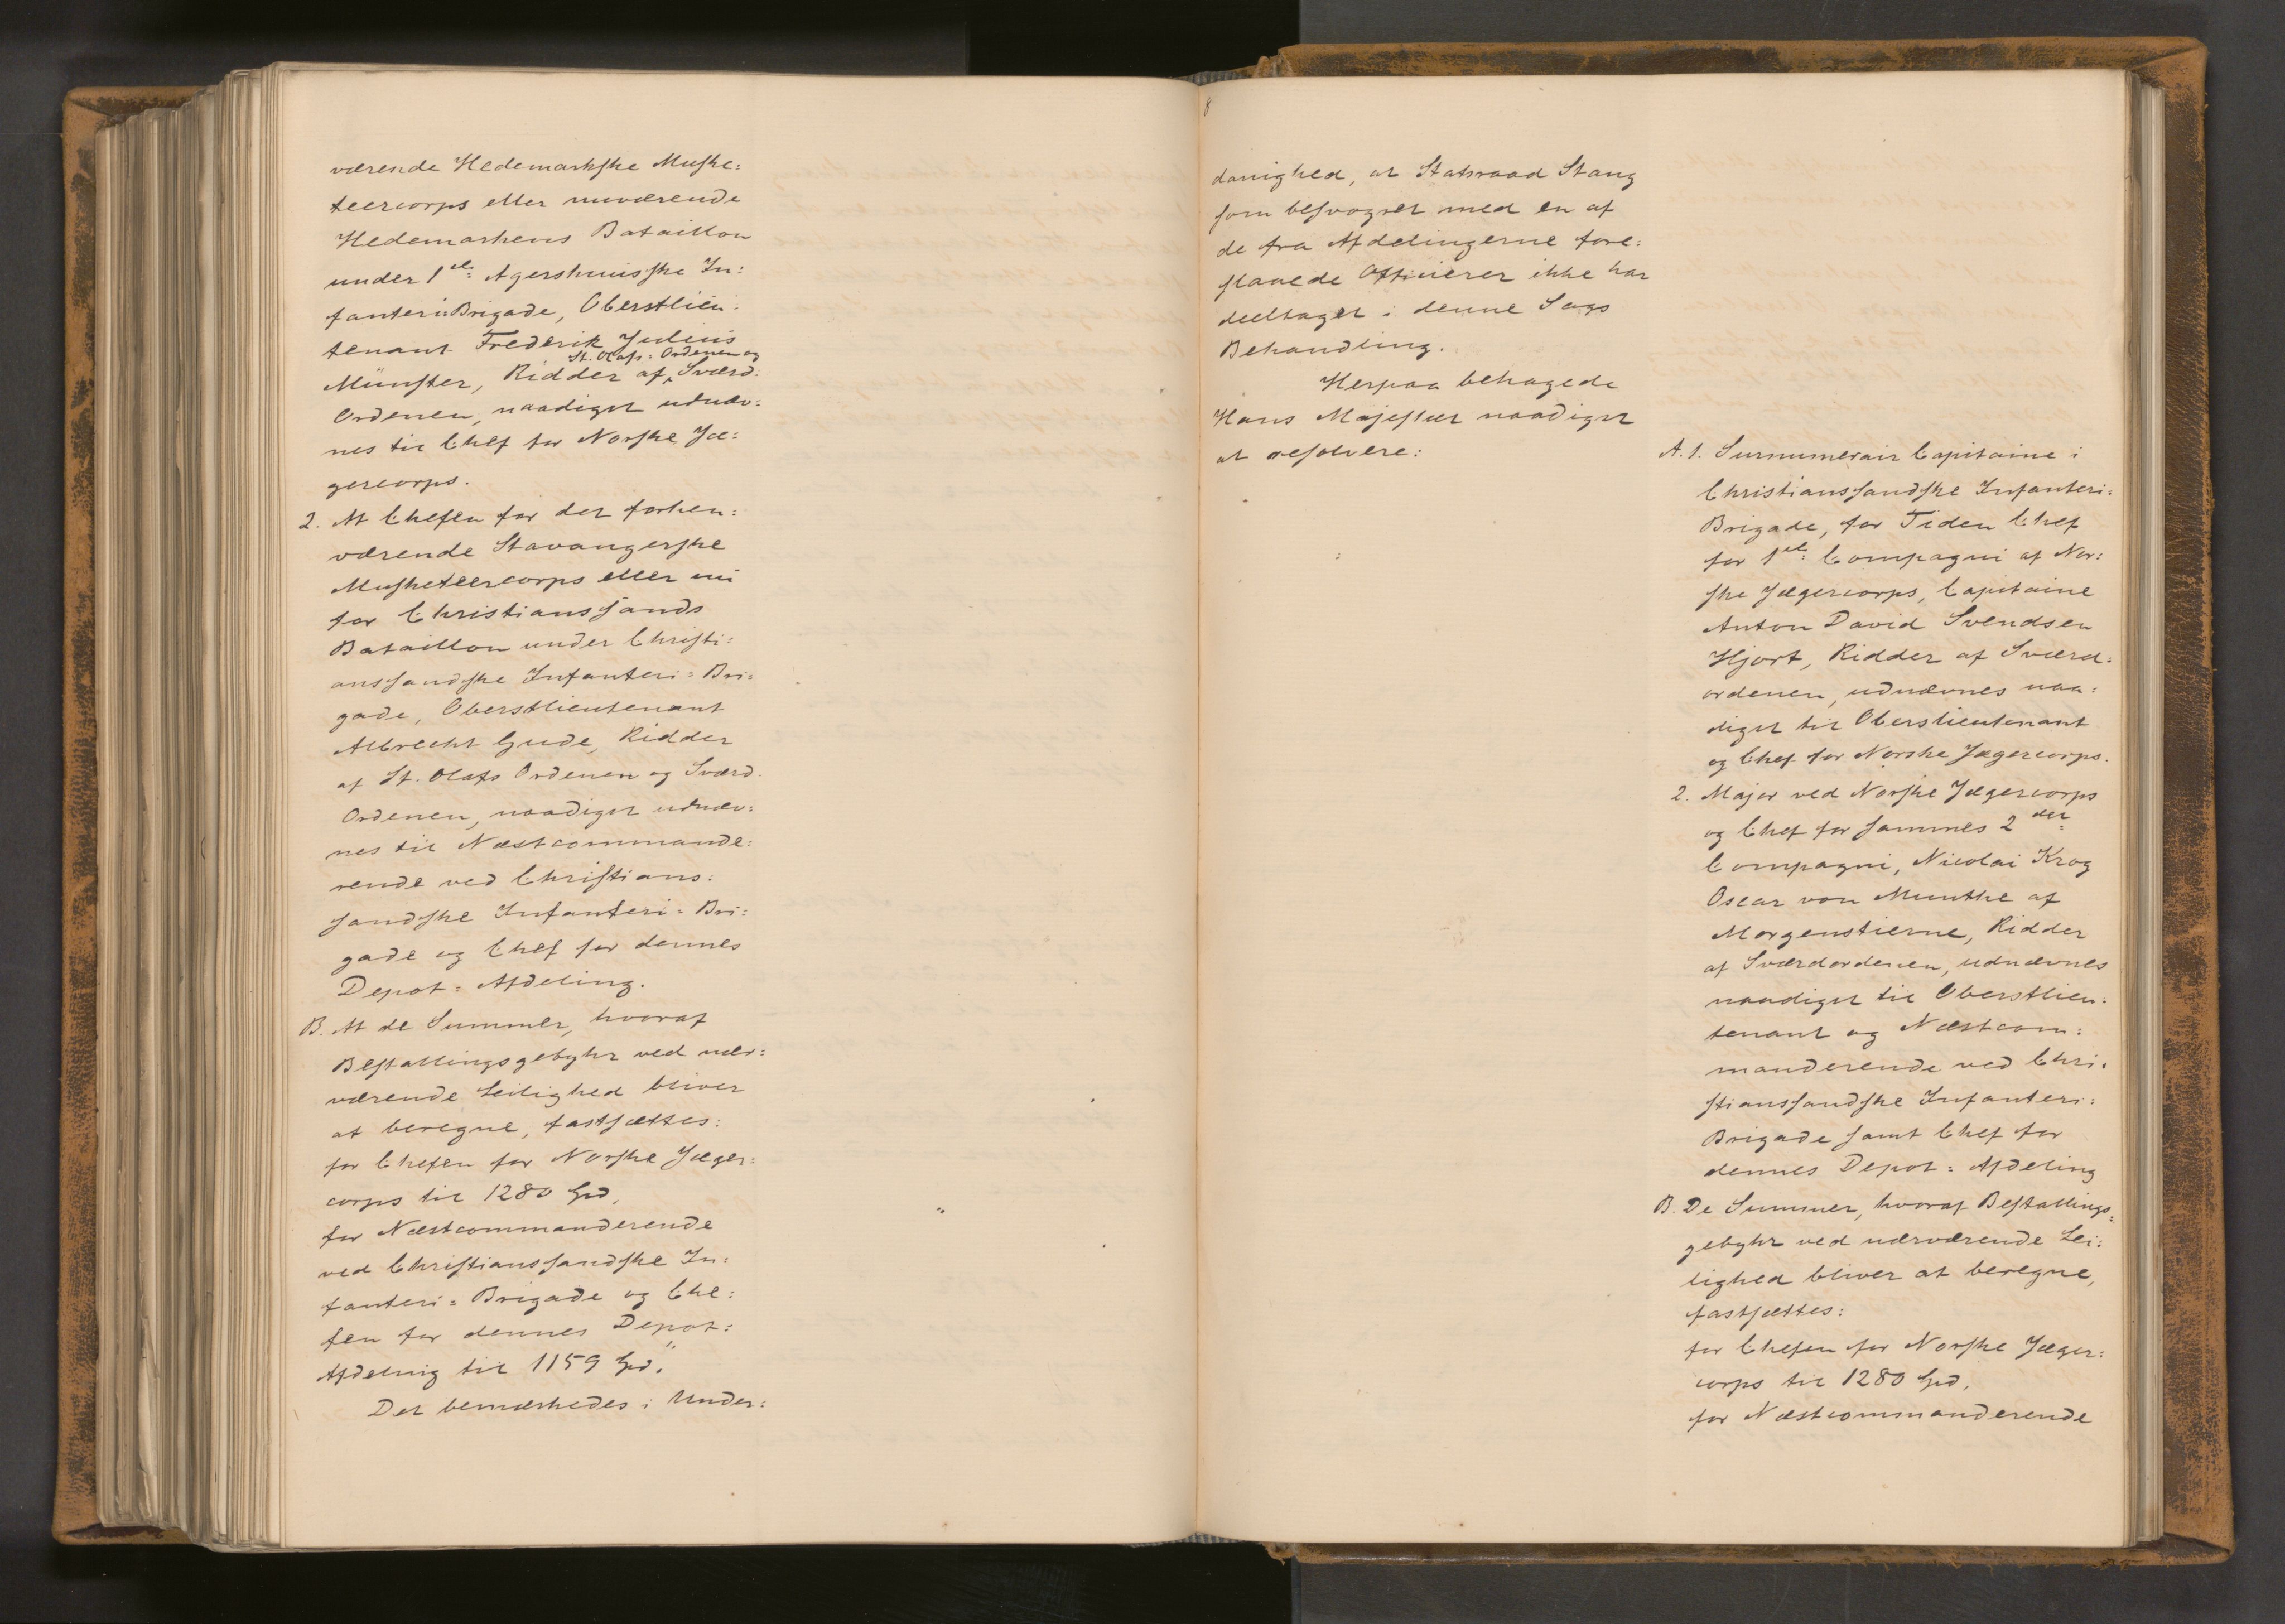 værende Hedemarkske Muske=
teercorps eller nuværende
Hedemarkens Bataillon
under 1ste Agershuusske In=
fanteri=Brigade, Oberstlieu=
tenant Frederik Julius
St. Olafs=Ordenen og
Münster, Ridder af Sværd=
Ordenen, naadigst udnæv=
nes til Chef for Norske Jæ=
gercorps.
2. At Chefen for det forhen=
værende Stavangerske
Musketeercorps eller nu
for Christianssands
Bataillon under Christi=
anssandske Infanteri=Bri=
gade, Oberstlieutenant
Albrecht Gude, Ridder
af St. Olafs Ordenen og Sværd=
Ordenen, naadigst udnæv=
nes til Næstcommande=
rende ved Christians=
sandske Infanteri=Bri=
gade og Chef for dennes
Depot=Afdeling.
B. At de Summer, hvoraf
Bestallingsgebyhr ved nær=
værende Leilighed bliver
at beregne, fastsættes:
for Chefen for Norske Jæger=
corps til 1280 Spd,
for Næstcommanderende
ved Christianssandske In=
fanteri=Brigade og Che=
fen for dennes Depot=
Afdeling til 1159 Spd."
Det bemærkedes i Under=
8
danighed, at Statsraad Stang
som besvogret med en af
de fra Afdelingerne fore=
slaaede Officierer ikke har
deeltaget i denne Sags
Behandling.
Herpaa behagede
Hans Majestæt naadigst
at resolvere:
A. 1. Surnumerair Capitaine i
Christianssandske Infanteri=
Brigade, for Tiden Chef
for 1ste Compagni af Nor=
ske Jægercorps, Capitaine
Anton David Svendsen
Hjort, Ridder af Sværd=
ordenen, udnævnes naa=
digst til Oberstlieutenant
og Chef for Norske Jægercorps.
2. Major ved Norske Jægercorps
og Chef for sammes 2det
Compagni, Nicolai Krog
Oscar von Munthe af
Morgenstierne, Ridder
af Sværdordenen, udnævnes
naadigst til Oberstlieu=
tenant og Næstcom=
manderende ved Chri=
stianssandske Infanteri=
Brigade samt Chef for
dennes Depot=Afdeling
B. De Summer, hvoraf Bestallings=
gebyhr ved nærværende Lei=
lighed bliver at beregne,
fastsættes:
for Chefen for Norske Jæger=
corps til 1280 Spd,
for Næstcommanderende